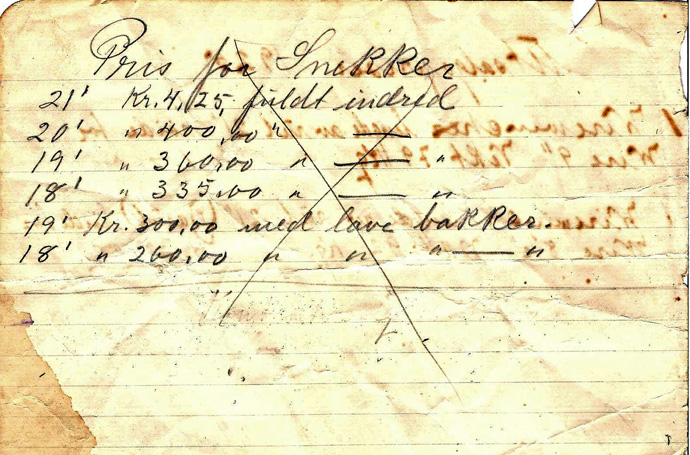 Pris for Snekker
21' Kr. 4,25, fuldt indred
20' " 400,00 " —
19' " 360,00 " — "
18' " 335,00 " — "
19' Kr. 300,00 med lave bakker.
18' " 260,00 " " " — "